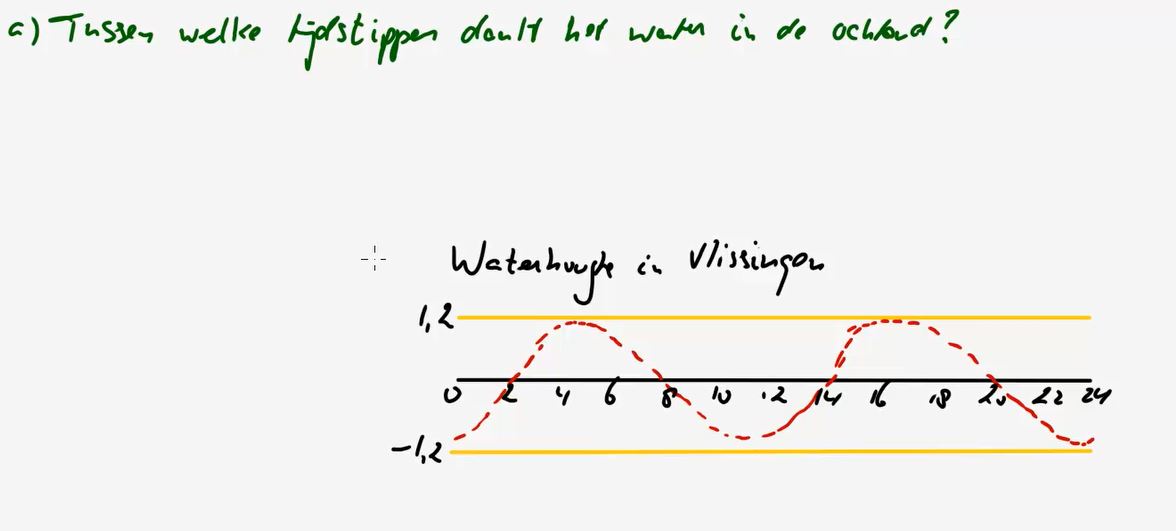 a) Tussen welke tijdstippen daalt het water in de ochtend?
Waterhoogte in Vlissingen
1,2
0 2 4 6 8 10 12 14 16 18 20 22 24
-1,2